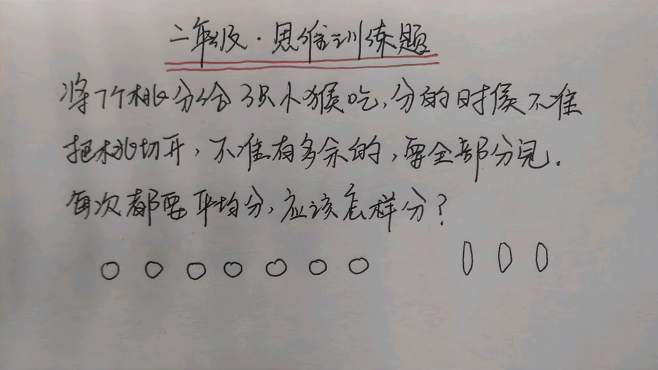 二年级·思维训练题
将7个桃分给3只小猴吃,分的时候不准
把桃切开,不准有多余的,要全部分完.
每次都要平均分,应该怎样分?